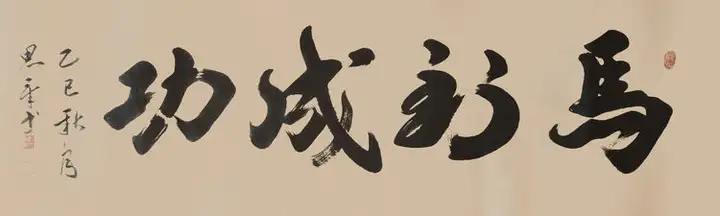 馬到成功
乙巳秋月
思书